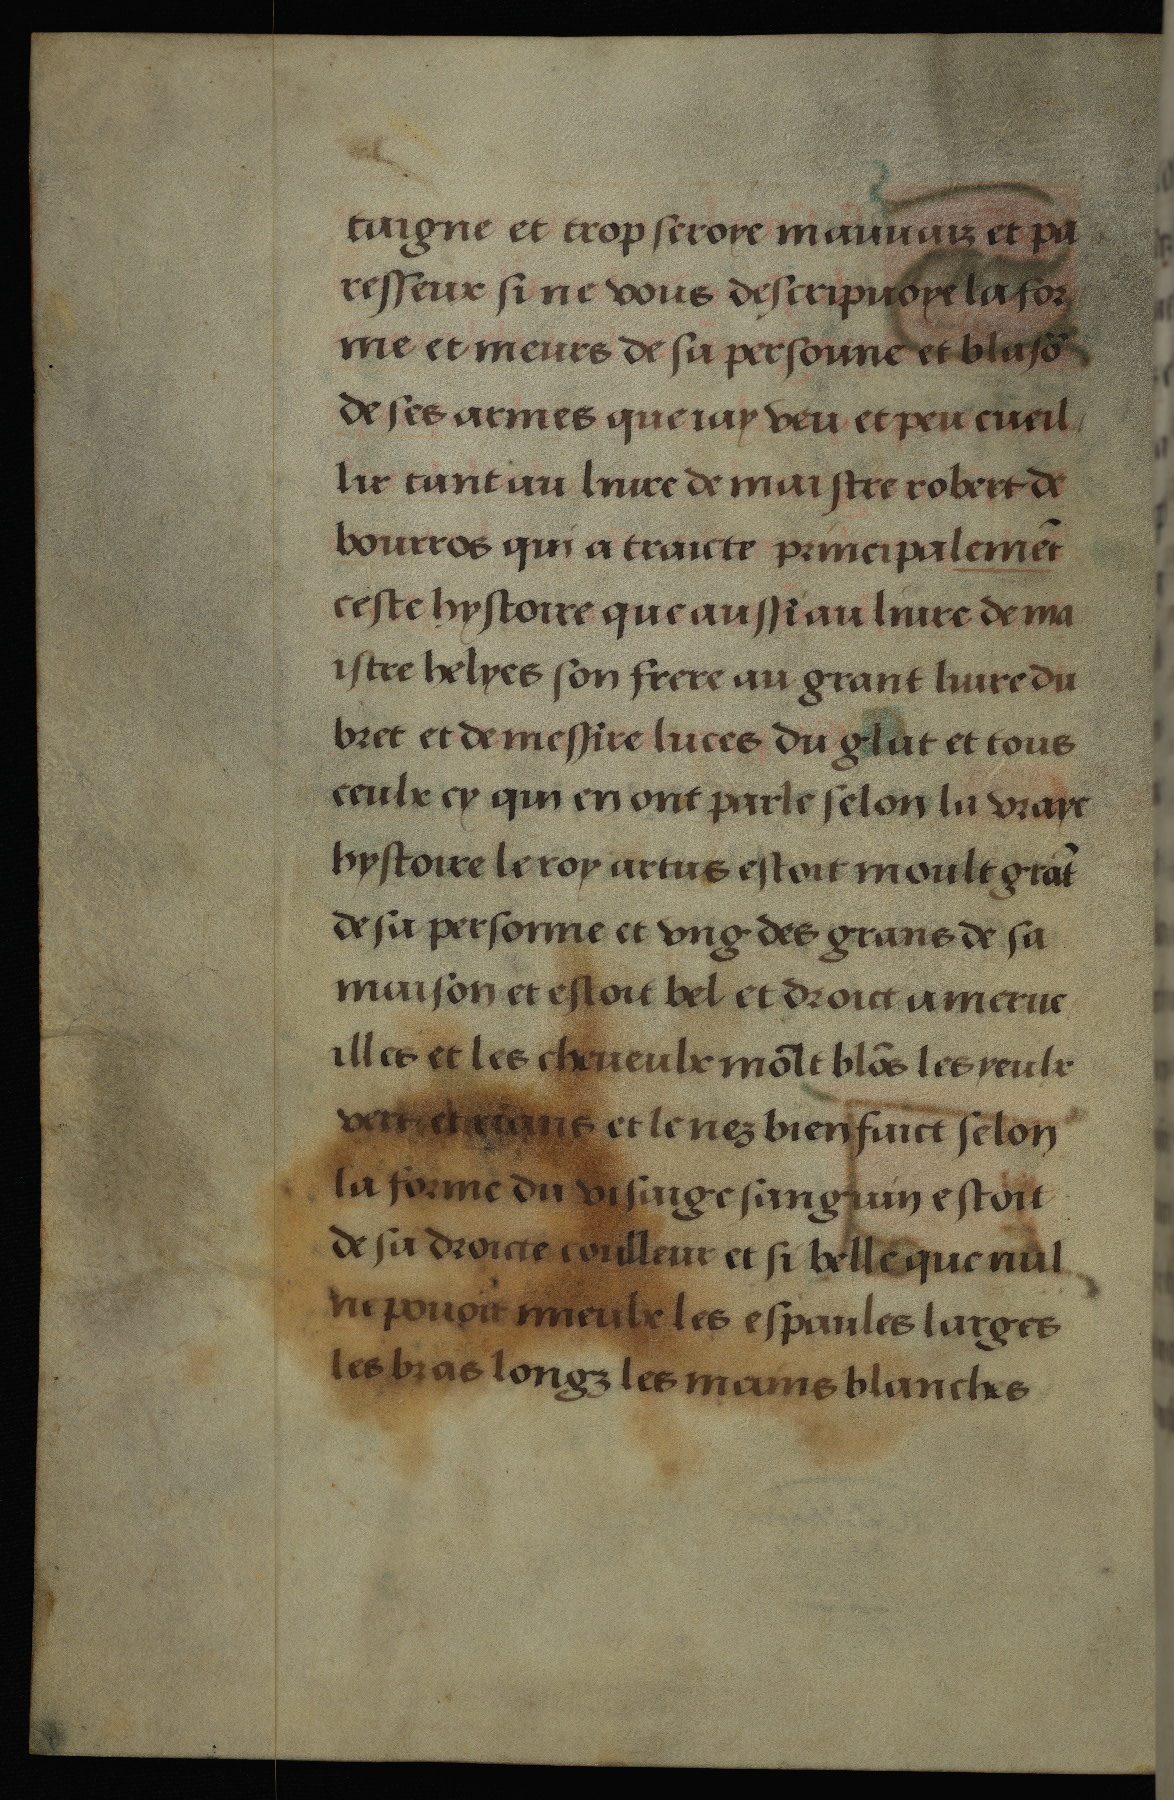 taigne et trop seroye mauuaiz et pa
resseux si ne vous descripuoye la for
me et meurs de sa personne et blasō
de ses armes que iay veu et peu cueil
lir tant au liure de maistre robert de
bourros qui a traicte principalemēt
ceste hystoire que aussi au liure de ma
istre helyes son frere au grant liure du
bret et de messire luces du glat et tous
ceulx cy qui en ont parle selon la vraye
hystoire le roy artus estoit moult grāt
de sa personne et vng des grans de sa
maison et estoit bel et droict a merue
illes et les cheueulx mōlt blōs les yeulx
vert et rians et le nez bien faict selon
la forme du visaige sanguin estoit
de sa droicte coulleur et si belle que nul
ne pouoit mieulx les espaules larges
les bras longz les mains blanches